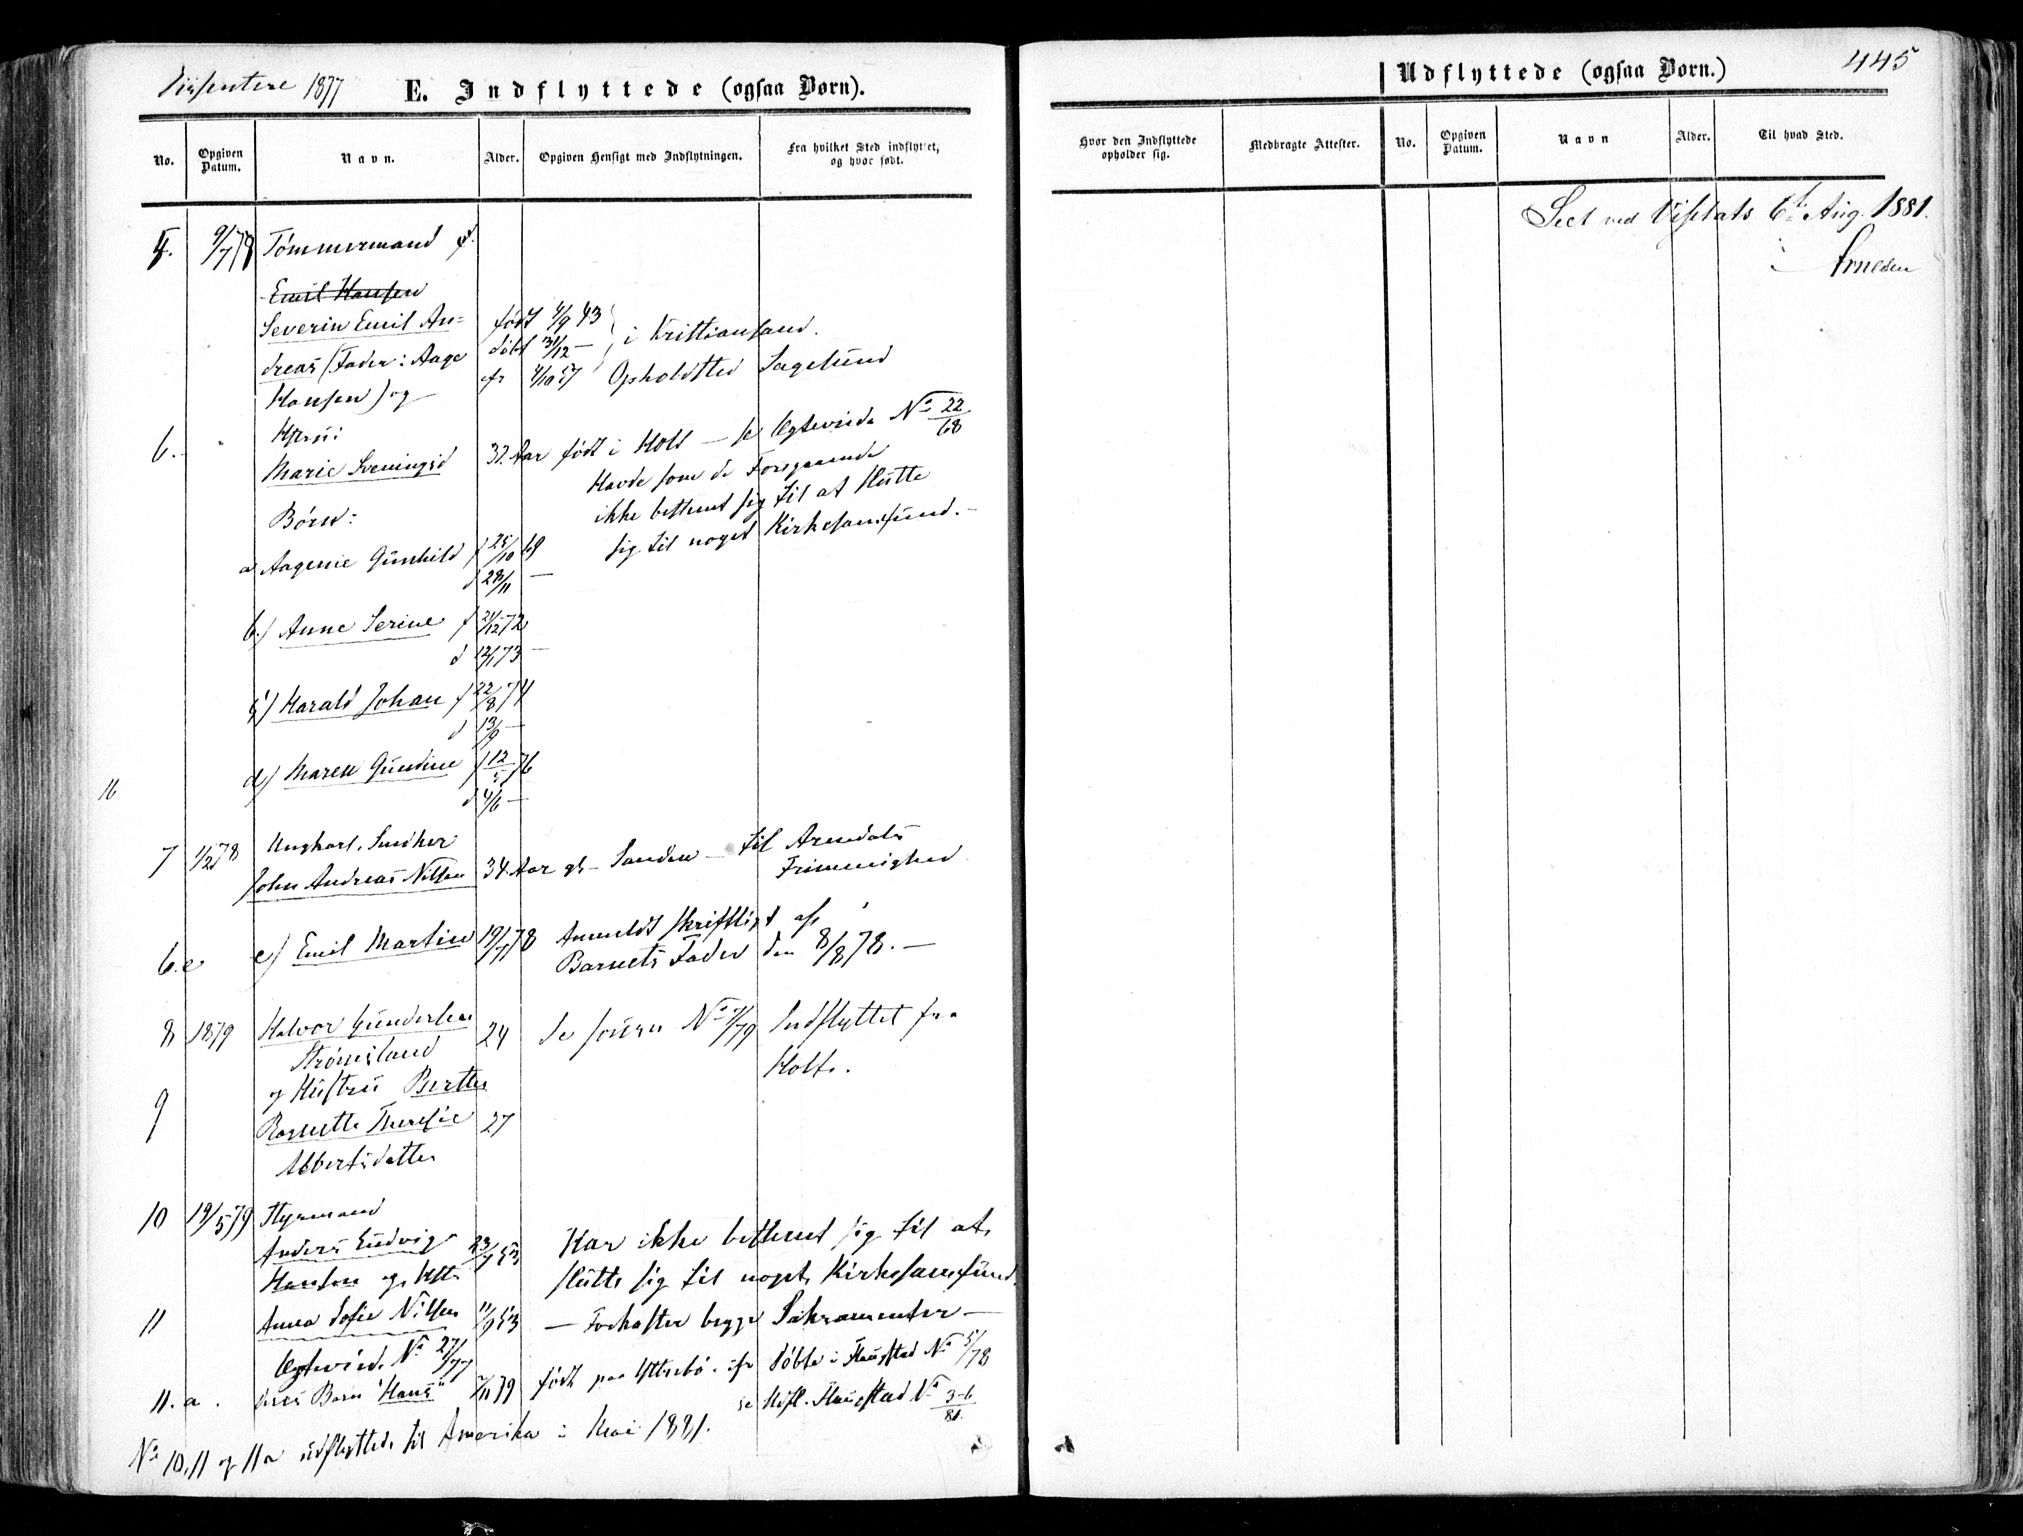 Dissentere 1877
E. Indflyttede (ogsaa Børn).
Udflyttede (ogsaa Børn.)
445
No.
Opgiven Datum.
Navn.
Alder.
Opgiven Hensigt med Indflytningen.
Fra hvilket Sted indflyttet, og hvor født.
Hvor den Indflyttede opholder sig.
Medbragte Attester.
No.
Opgiven Datum.
Navn
Alder.
Til hvad Sted.
Seet ved Visitats 6t Aug. 1881.
5. 9/7 78 Tømmermand
Emil Hansen
Severin Emil An= født 4/9 43
dreas (Fader: Aage døbt 31/12 — i Kristiansand.
Hansen) og 57 Opholdsted Sagesund
6. Hstru:
Marie Sveningsd 32 Aar født i Holt — se Ægteviede No 22/68
Havde som de Foregaaende
Børn: ikke bestemt sig til at slutte
a Aagenie Gunhild f 25/10 69 sig til noget Kirkesamfund. —
d 28/11 —
b.) Anne Serine f 21/12 72
d 12/1 73 —
c) Harald Johan f 22/8 74
d 13/9 —
d) Maren Gundine f 12/5 76
16
d 4/6 —
7 1/2 78 Ungkarl. Snedker
John Andreas Nilsen 34 Aar gl — Sanden — til Arendals
Frimenighed
6.e e) Emil Martin 19/7 78 Anmeldt skriftligt af
Barnets Fader den 8/8 78. —
8 1879 Halvor Gundersen 24 Se Journ No 7/79 Indflyttet fra
Strømsland Holt.
9 og Hustru Berthe
Rosette Theresie 27
Albertsdatter
10 19/5 79 Styrmand
Anders Ludvig 23/7 53 Har ikke bestemt sig til at
Hansen og Hst. slutte sig til noget Kirkesamfund.
11 Anna Sofie Nilsen 11/9 53 — Forkaster begge Sakramenter —
Ægteviede No 27/77
11.a. deres Barn "Hans" 2/11 79 født paa Yttrebø. Døbte i Flaugstad No 5/78
se Udfl. Flaugstad No 3-6/81.
No 10, 11 og 11a udflyttede til Amerika i Mai 1881.